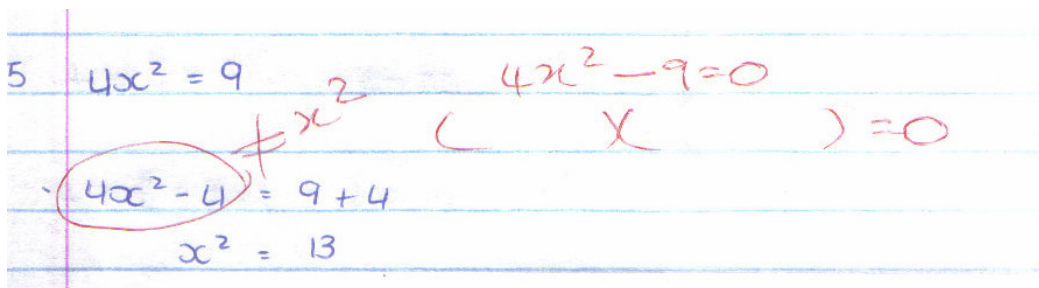 5 4x² = 9
4x² - 9 = 0
≠ x²
( )( ) = 0
4x² - 4 = 9 + 4
x² = 13